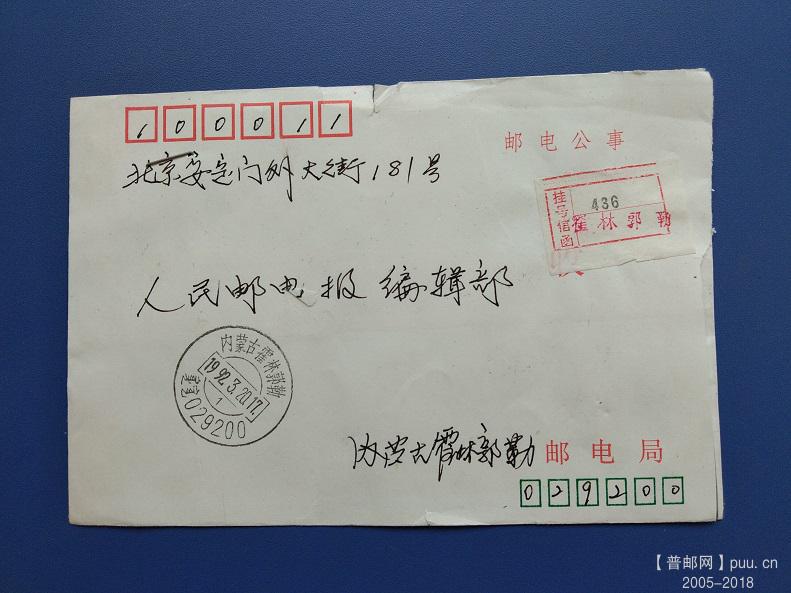 100011
邮电公事
北京安定门外大街181号
挂号信函
436
霍林郭勒
人民邮电报编辑部
内蒙古霍林郭勒
1992.3.20.17.
1
029200
内蒙古霍林郭勒邮电局
029200
【普邮网】puu.cn
2005-2018